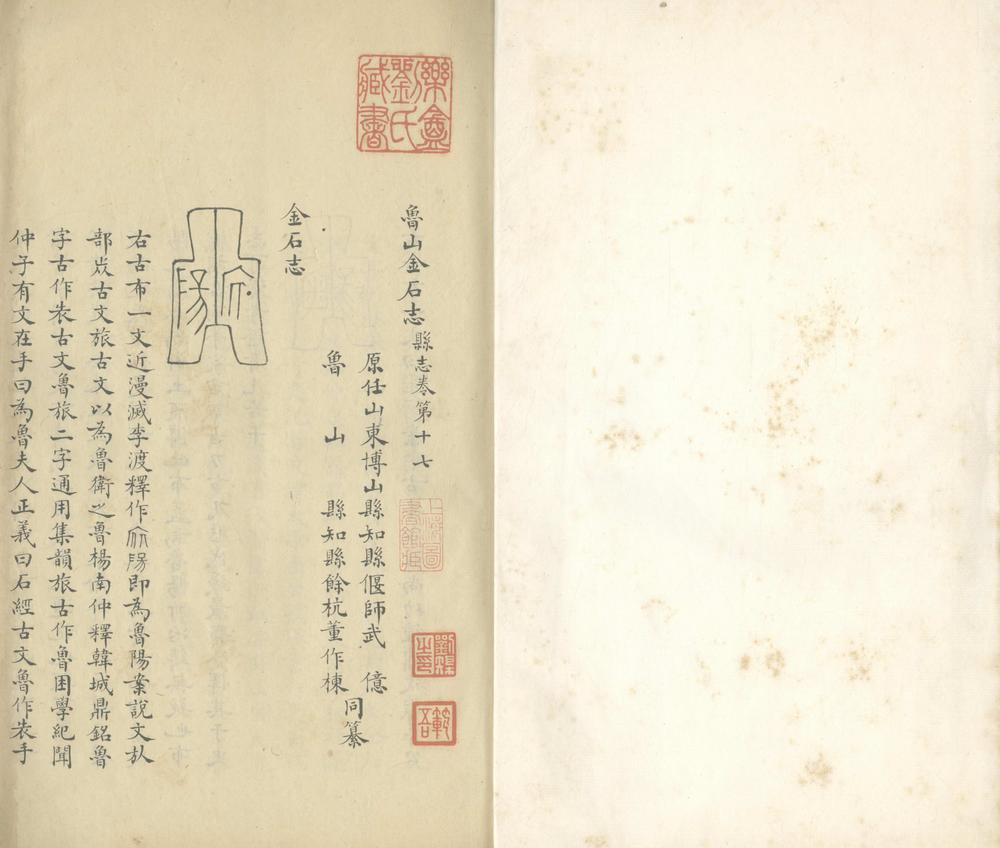 魯山金石志縣志卷第十七
原任山東博山縣知縣偃師武億
魯山縣知縣餘杭董作棟
同纂
金石志
陽
右古布一文近漫滅李渡釋作 即為魯陽案說文㫃
部㞢古文旅古文以為魯衛之魯楊南仲釋韓城鼎銘魯
字古作㞢古文魯旅二字通用集韻旅古作魯困學紀聞
仲子有文在手曰為魯夫人正義曰石經古文魯作㞢手
樂盦劉氏藏書
上海圖書館藏